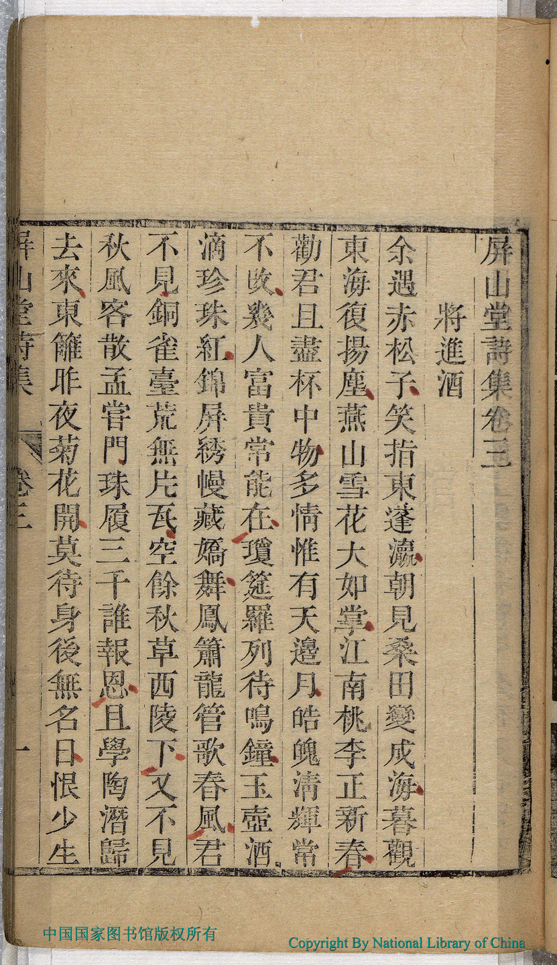 屏山堂詩集卷三
將進酒
余遇赤松子笑指東蓬瀛朝見桑田變成海暮觀
東海復揚塵燕山雪花大如掌江南桃李正新春
勸君且盡杯中物多情惟有天邊月皓魄清輝常
不改幾人富貴常能在瓊筵羅列待鳴鐘玉壺酒
滴珍珠紅錦屏綉幔藏嬌舞鳳簫龍管歌春風君
不見銅雀臺荒無片瓦空餘秋草西陵下又不見
秋風客散孟嘗門珠履三千誰報恩且學陶潛歸
去來東籬昨夜菊花開莫待身後無名日恨少生
屏山堂詩集 卷三 一
中国国家图书馆版权所有
Copyright By National Library of China